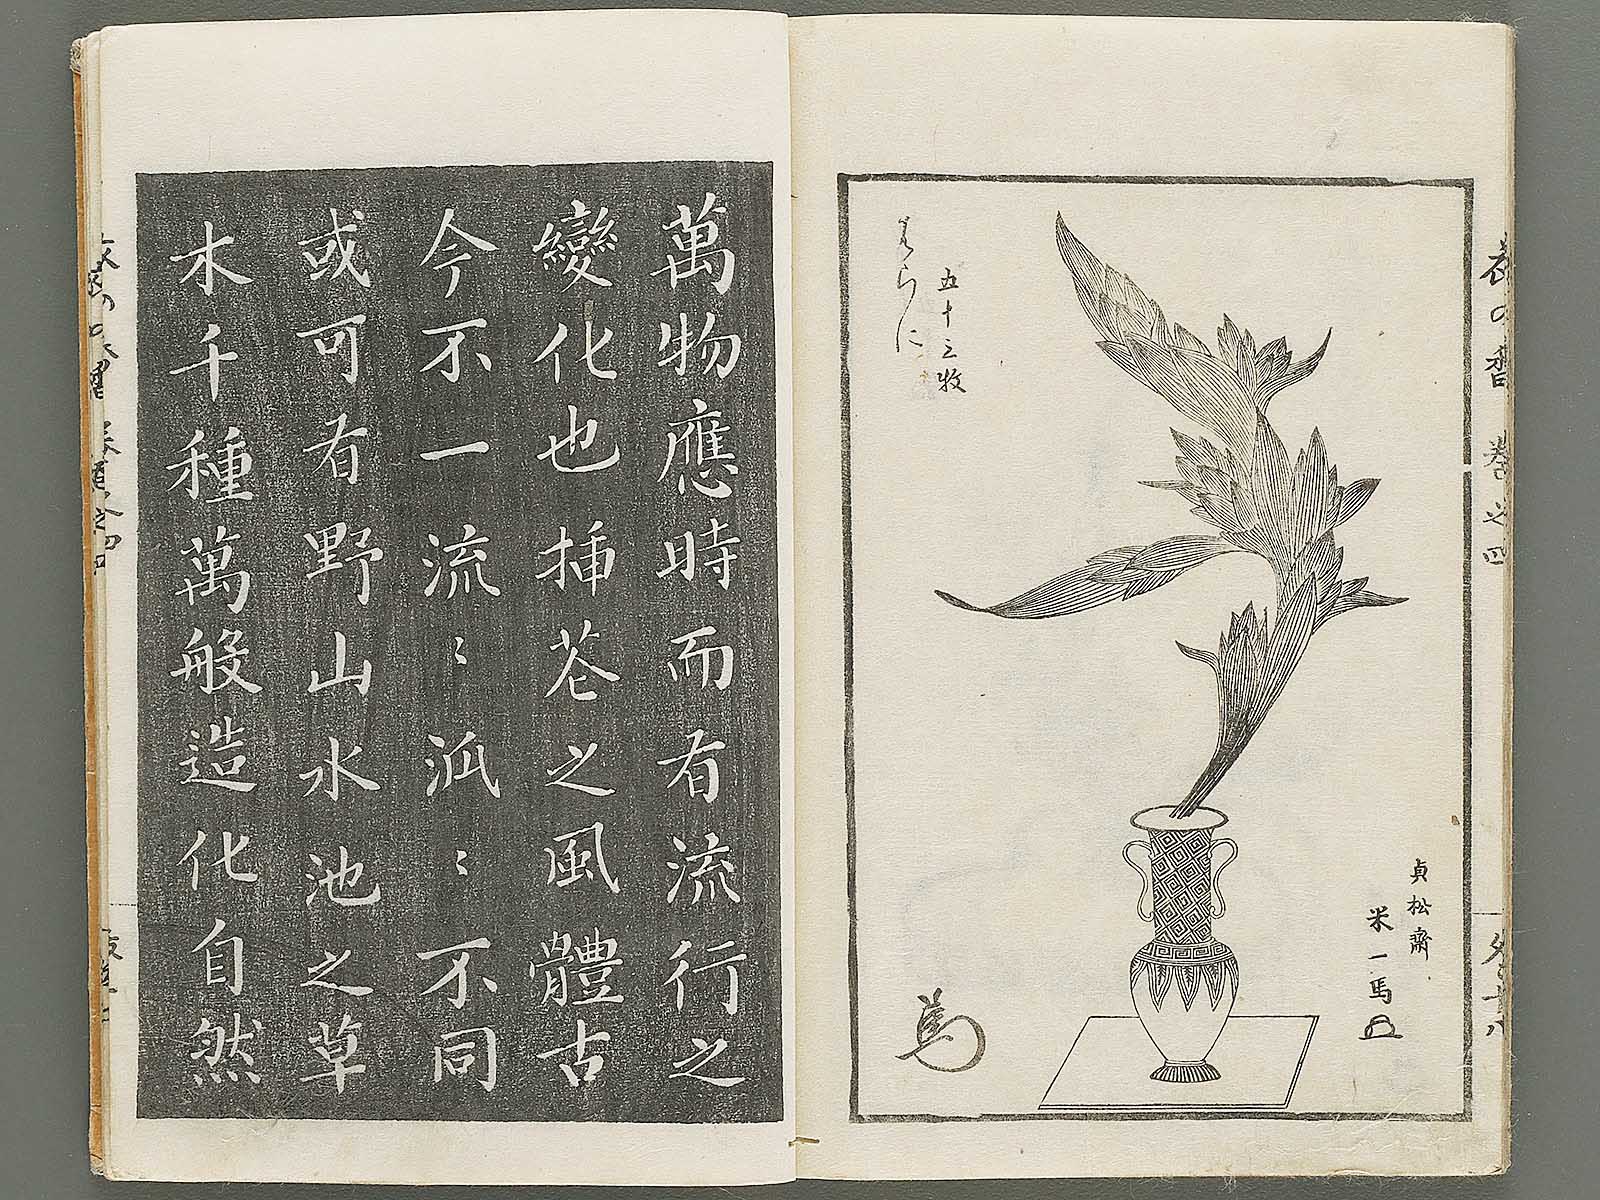 五十三枚
はらん
貞松齋
米一馬
萬物應時而有流行之
變化也挿花之風體古
今不一流〻派〻不同
或可有野山水池之草
木千種萬般造化自然